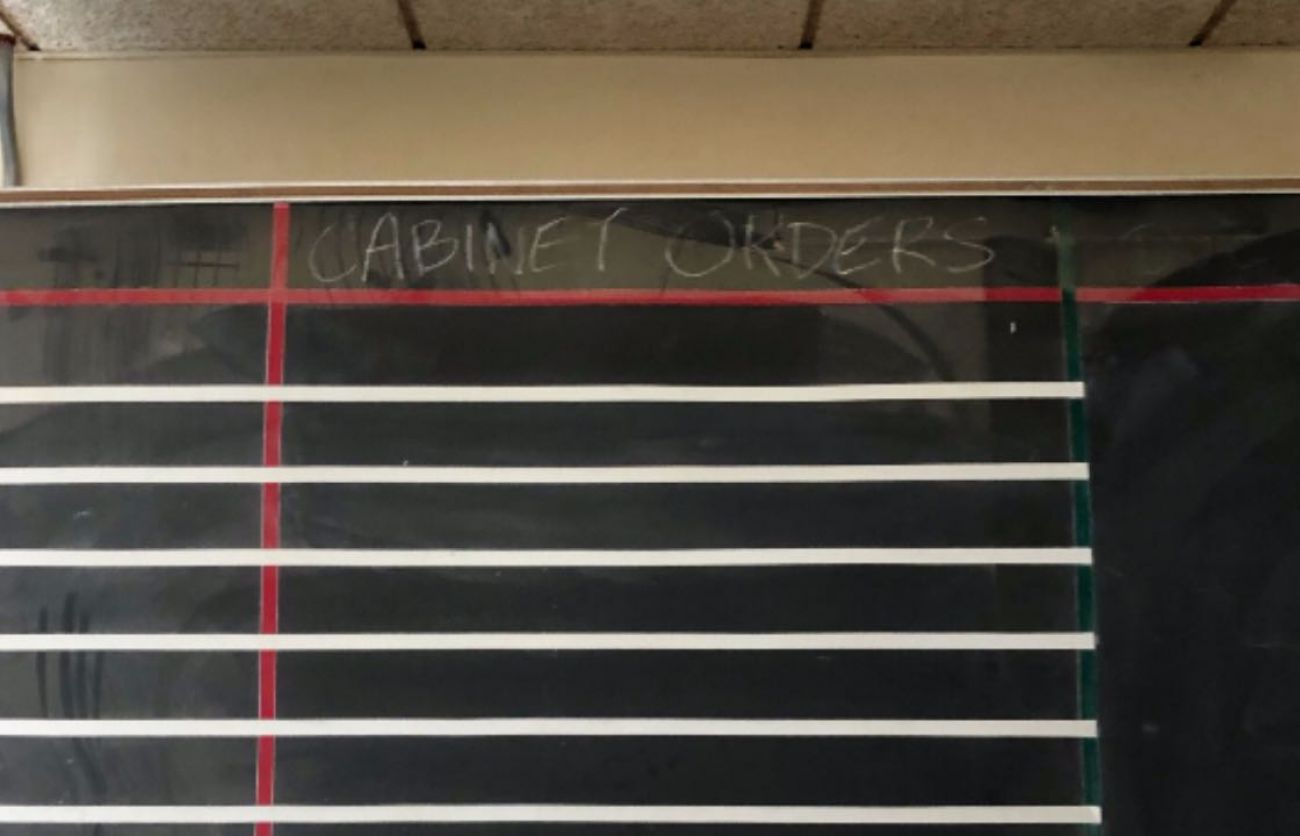 CABINET ORDERS